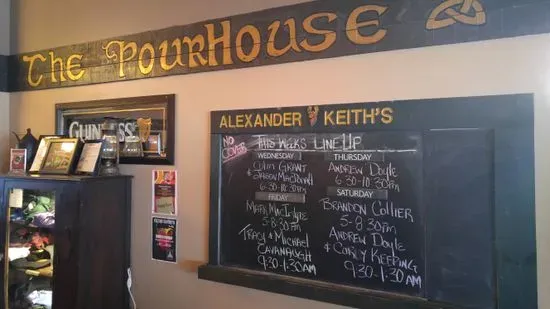 The PourHouse
GUINNESS
ALEXANDER KEITH'S
NO COVER
THIS WEEKS LINE UP
WEDNESDAY
COLIN GRANT
& JASON MACDONALD
6:30-10:30PM
THURSDAY
ANDREW DOYLE
6:30-10:30PM
FRIDAY
MARK MACINTYRE
5-8:30PM
TRACY & MICHAEL
CAVANAUGH
9:30-1:30AM
SATURDAY
BRANDON COLLIER
5-8:30PM
ANDREW DOYLE
& CORLY KEEPING
9:30-1:30AM